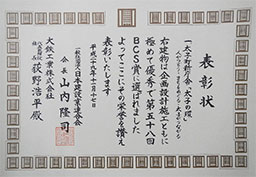 表彰状
「太子町新庁舎「太子の環」
右建物は企画設計施工ともに
極めて優秀で第五十八回
BCS賞に選ばれました
よってここにその栄誉を讃え
表彰いたします
平成二十九年十一月十七日
一般社団法人日本建設業連合会
会長 山内隆司
大鉄工業株式会社
荻野浩平殿